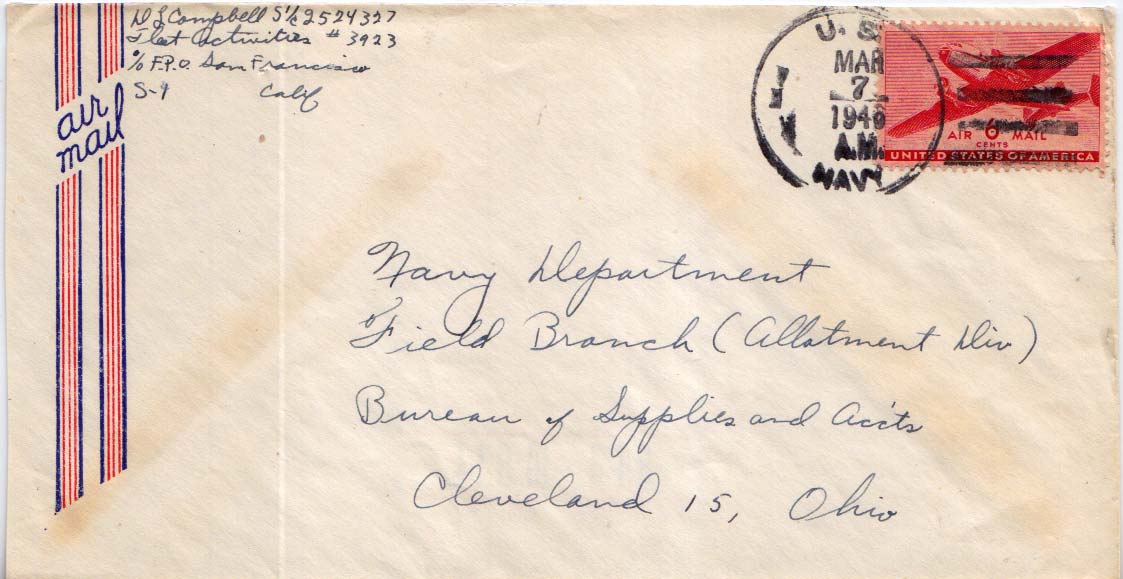 D L Campbell S1/c 2524327
Fleet Activities # 3923
c/o F.P.O. San Francisco
S-1 Calif
air
mail
U. S.
MAR
7
1946
A.M.
NAVY
AIR 6 MAIL
CENTS
UNITED STATES OF AMERICA
Navy Department
Field Branch (Allotment Div)
Bureau of Supplies and Acc'ts
Cleveland 15, Ohio